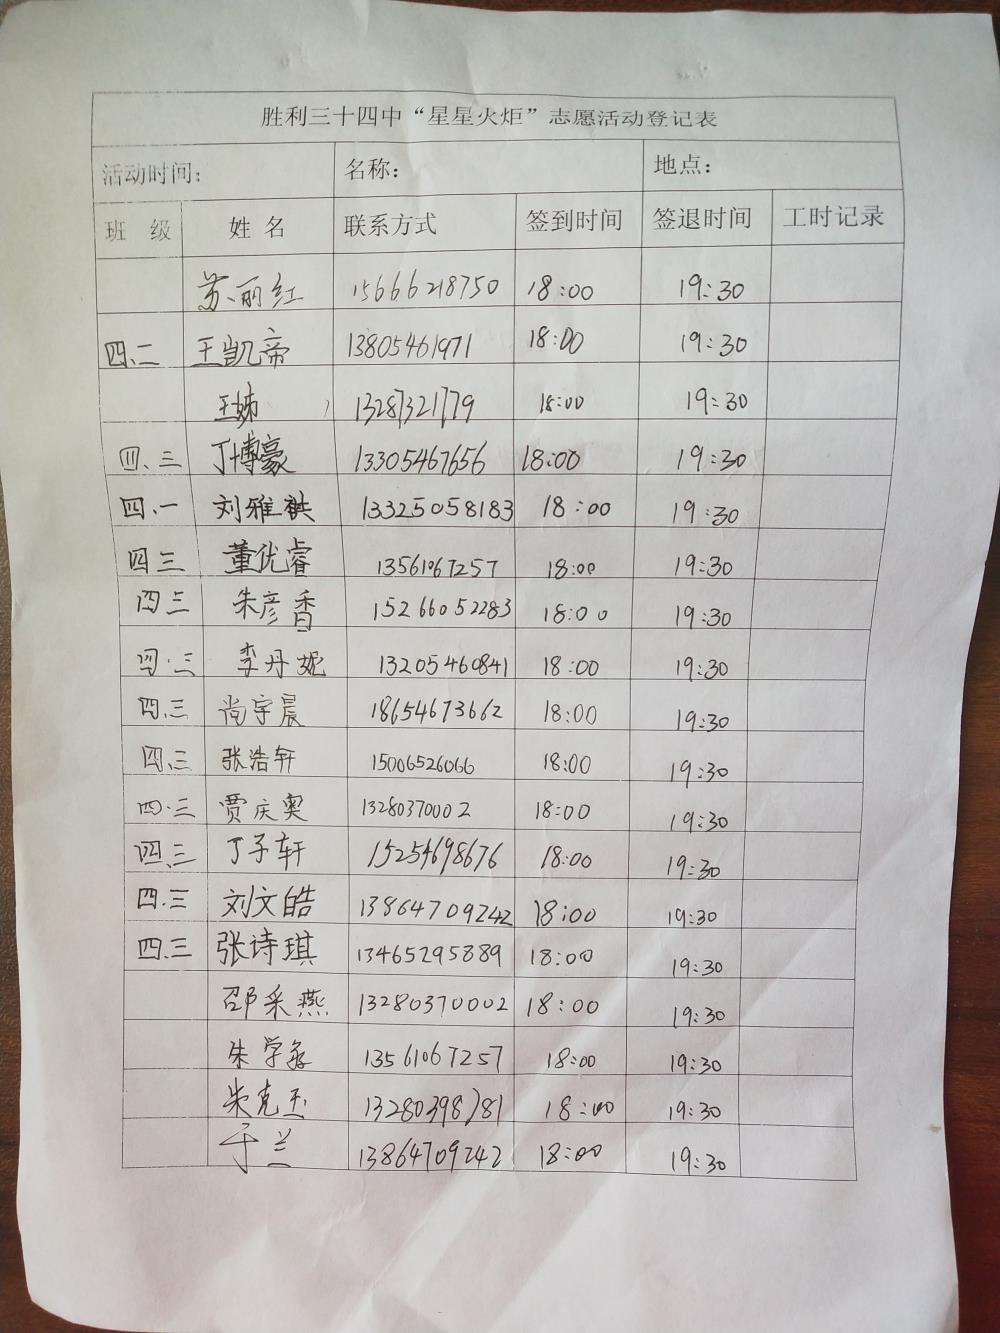 胜利三十四中“星星火炬”志愿活动登记表
活动时间： 名称： 地点：
班 级 姓 名 联系方式 签到时间 签退时间 工时记录
苏丽红 15666218750 18:00 19:30
四、二 王凯帝 13805461971 18:00 19:30
王姊 13287321779 18:00 19:30
四、三 丁博豪 13305467656 18:00 19:30
四、一 刘雅祺 13325058183 18:00 19:30
四三 董优睿 13561067257 18:00 19:30
四三 朱彦香 15266052283 18:00 19:30
四.三 李丹妮 13205460841 18:00 19:30
四.三 尚宇晨 18654673662 18:00 19:30
四.三 张浩轩 15006526066 18:00 19:30
四.三 贾庆奥 13280370002 18:00 19:30
四.三 丁子轩 15254698676 18:00 19:30
四.三 刘文皓 13864709242 18:00 19:30
四.三 张诗琪 13465295889 18:00 19:30
邵采燕 13280370002 18:00 19:30
朱学 13561067257 18:00 19:30
朱克玉 13280398781 18:00 19:30
于兰 13864709242 18:00 19:30